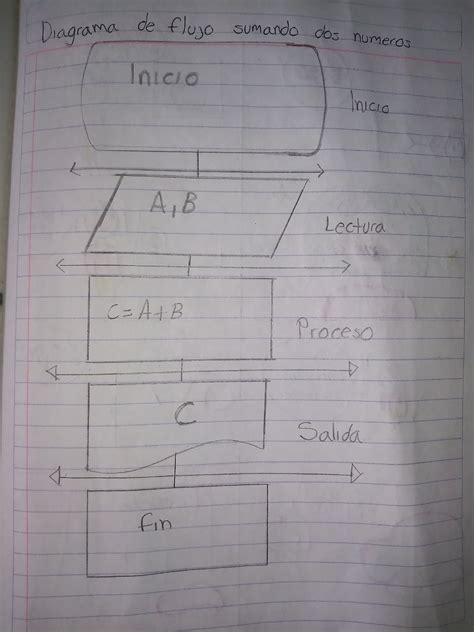 Diagrama de flujo sumando dos numeros
Inicio
Inicio
A,B
Lectura
C=A+B
Proceso
C
Salida
fin